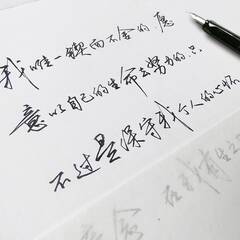 我唯一锲而不舍的愿
意以自己的生命去努力的只
不过是保守我个人的心怀